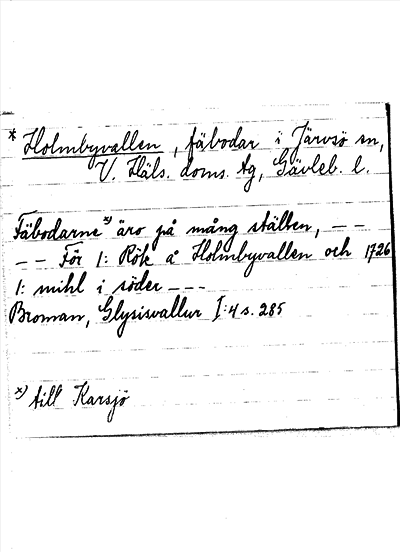 * Holmbyvallen, fäbodar i Järvsö sn,
V. Häls. doms. tg, Gävleb. l.
Fäbodarne x) äro på mång ställen, – –
– – För 1: Rök å Holmbyvallen och 1726
1: mihl i söder – – –
Broman, Glysisvallur I:4 s. 285
x) till Karsjö